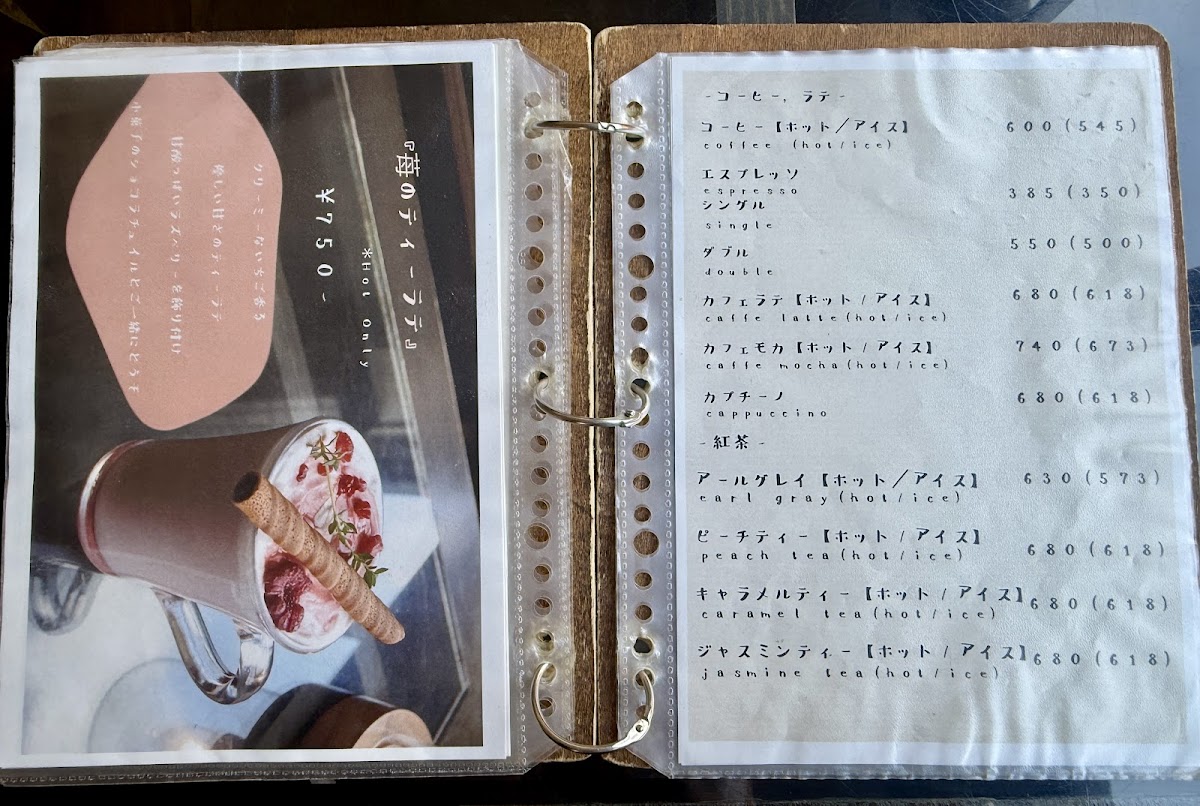 『苺のティーラテ』
*Hot Only
¥750-
クリーミーないちご香る
優しい甘さのティーラテ
甘酸っぱいラズベリーを飾り付け
小菓子のショコラチュイルとご一緒にどうぞ
-コーヒー, ラテ-
コーヒー【ホット/アイス】 600(545)
coffee (hot/ice)
エスプレッソ
espresso 385(350)
シングル
single
ダブル 550(500)
double
カフェラテ【ホット/アイス】 680(618)
caffe latte(hot/ice)
カフェモカ【ホット/アイス】 740(673)
caffe mocha(hot/ice)
カプチーノ 680(618)
cappuccino
-紅茶-
アールグレイ【ホット/アイス】 630(573)
earl gray(hot/ice)
ピーチティー【ホット/アイス】 680(618)
peach tea(hot/ice)
キャラメルティー【ホット/アイス】 680(618)
caramel tea(hot/ice)
ジャスミンティー【ホット/アイス】 680(618)
jasmine tea(hot/ice)